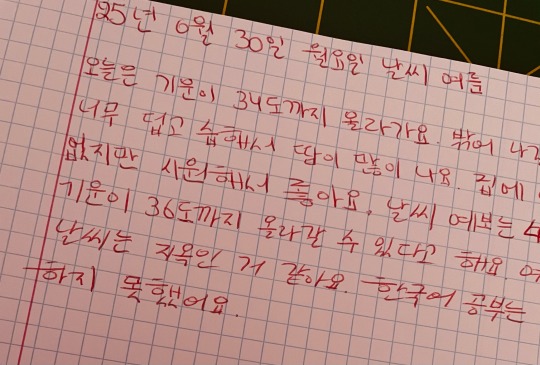 25년 6월 30일 월요일 날씨 여름
오늘은 기운이 34도까지 올라가요. 밖에 나
너무 덥고 습해서 땀이 많이 나요. 집에
없지만 시원해서 좋아요. 날씨 예보는
기운이 36도까지 올라갈 수 있다고 해요.
날씨는 지옥인 거 같아요. 한국어 공부는
하지 못했어요.